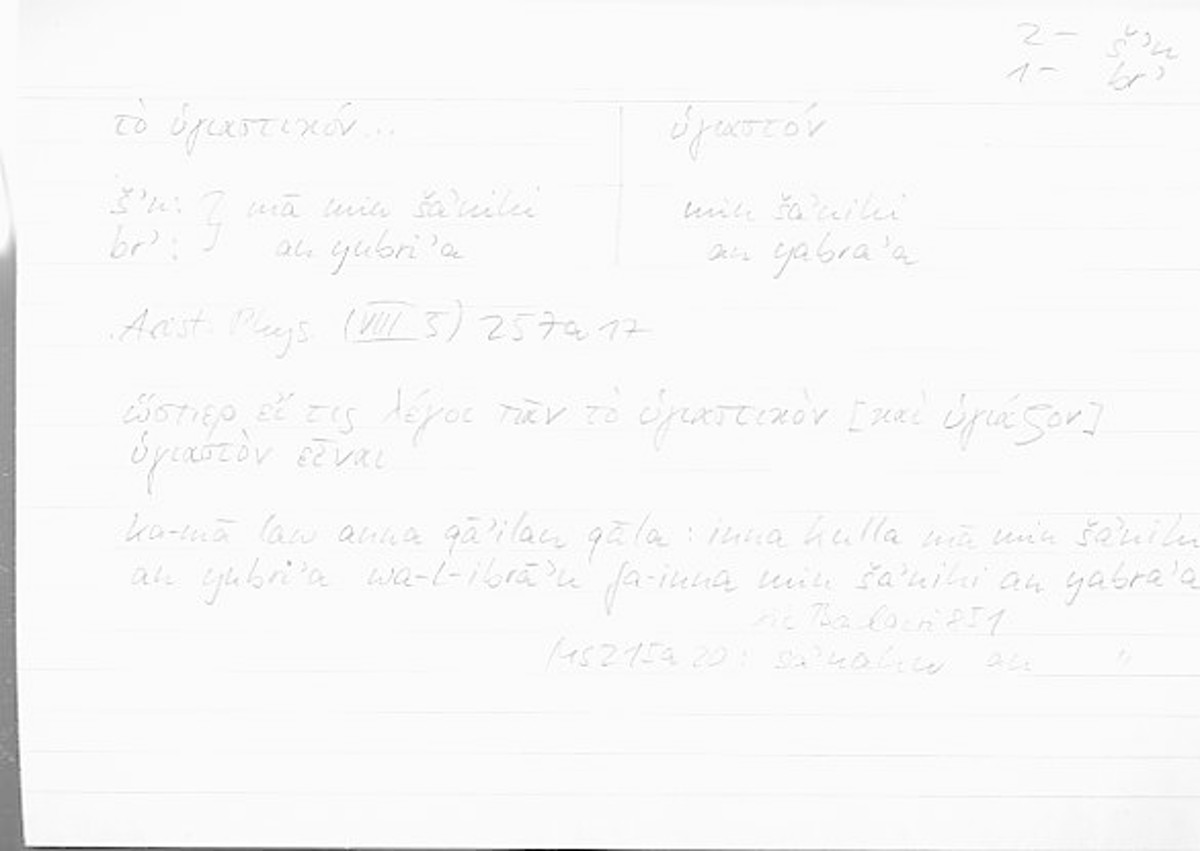 2 – šʾn
1 – brʾ
τὸ ὑγιαστικόν... ὑγιαστόν
šʾn: } mā min šaʾnihi min šaʾnihi
brʾ: } an yubriʾa an yabraʾa
Arist. Phys. (VIII 5) 257a17
ὥσπερ εἴ τις λέγοι πᾶν τὸ ὑγιαστικὸν [καὶ ὑγιάζον]
ὑγιαστὸν εἶναι
ka-mā law anna qāʾilan qāla: inna kulla mā min šaʾnihi
an yubriʾa wa-l-ibrāʾu fa-inna min šaʾnihi an yabraʾa
sic Badawi 851
MS 215a20: šaʾnahu an "